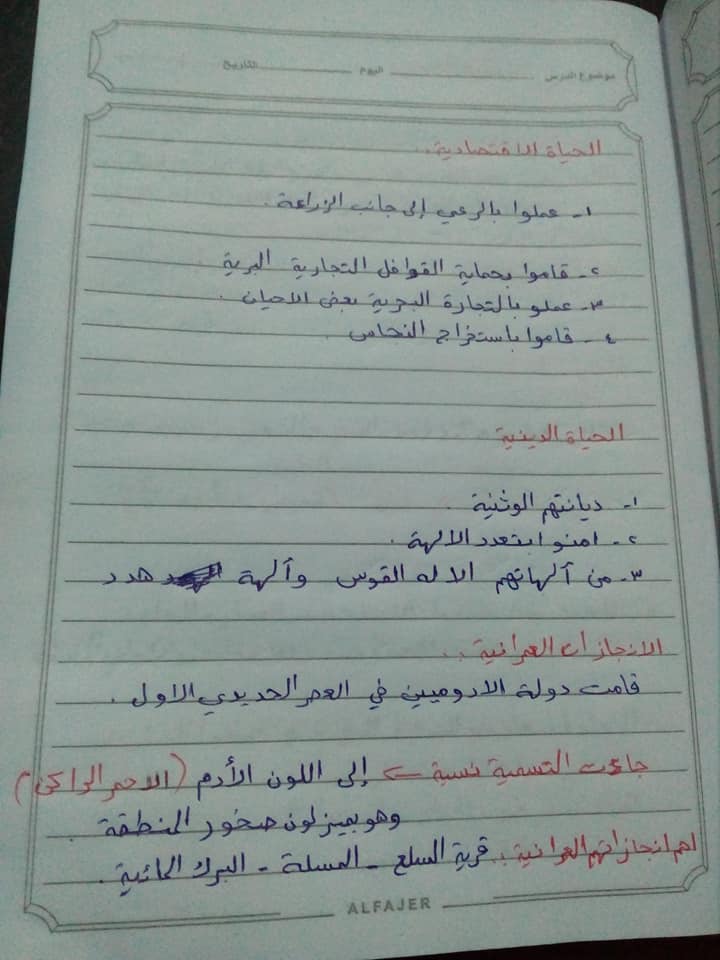 موضوع الدرس اليوم التاريخ
الحياة الاقتصادية..
١- عملوا بالرعي إلى جانب الزراعة.
٢- قاموا بحماية القوافل التجارية البرية
٣- عملو بالتجارة البحرية بعض الاحيان.
٤- قاموا باستخراج النحاس.
الحياة الدينية
١- ديانتهم الوثنية.
٢- امنوا بتعدد الالهة.
٣- من ألهاتهم الاله القوس وألهة هدد
الانجازات العمرانية..
قامت دولة الادوميين في العصر الحديدي الاول.
جاءت التسمية نسبة ← إلى اللون الأدم (الاحمر الداكن)
وهو يميز لون صخور المنطقة.
اهم انجازاتهم العمرانية.. قرية السلع - المسلة - البرك المائية.
ALFAJER